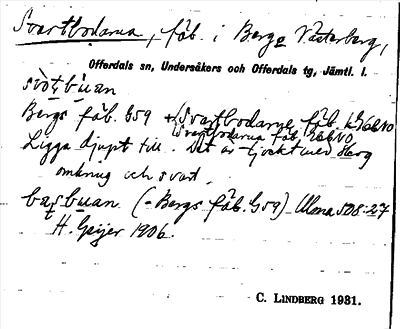 Svartbodarna, fäb. i Berge Västerberg,
Offerdals sn, Undersåkers och Offerdals tg, Jämtl. l.
svòṭbùan
Bergs fäb. G59 + Svartbodarne, fäb.
Svartbodarna fäb.
Ligga djupt till. Det är tjockt med skog
omkring och svart.
(= Bergs fäb. G59) Ulma 508:27
H. Geijer 1906.
C. LINDBERG 1931.